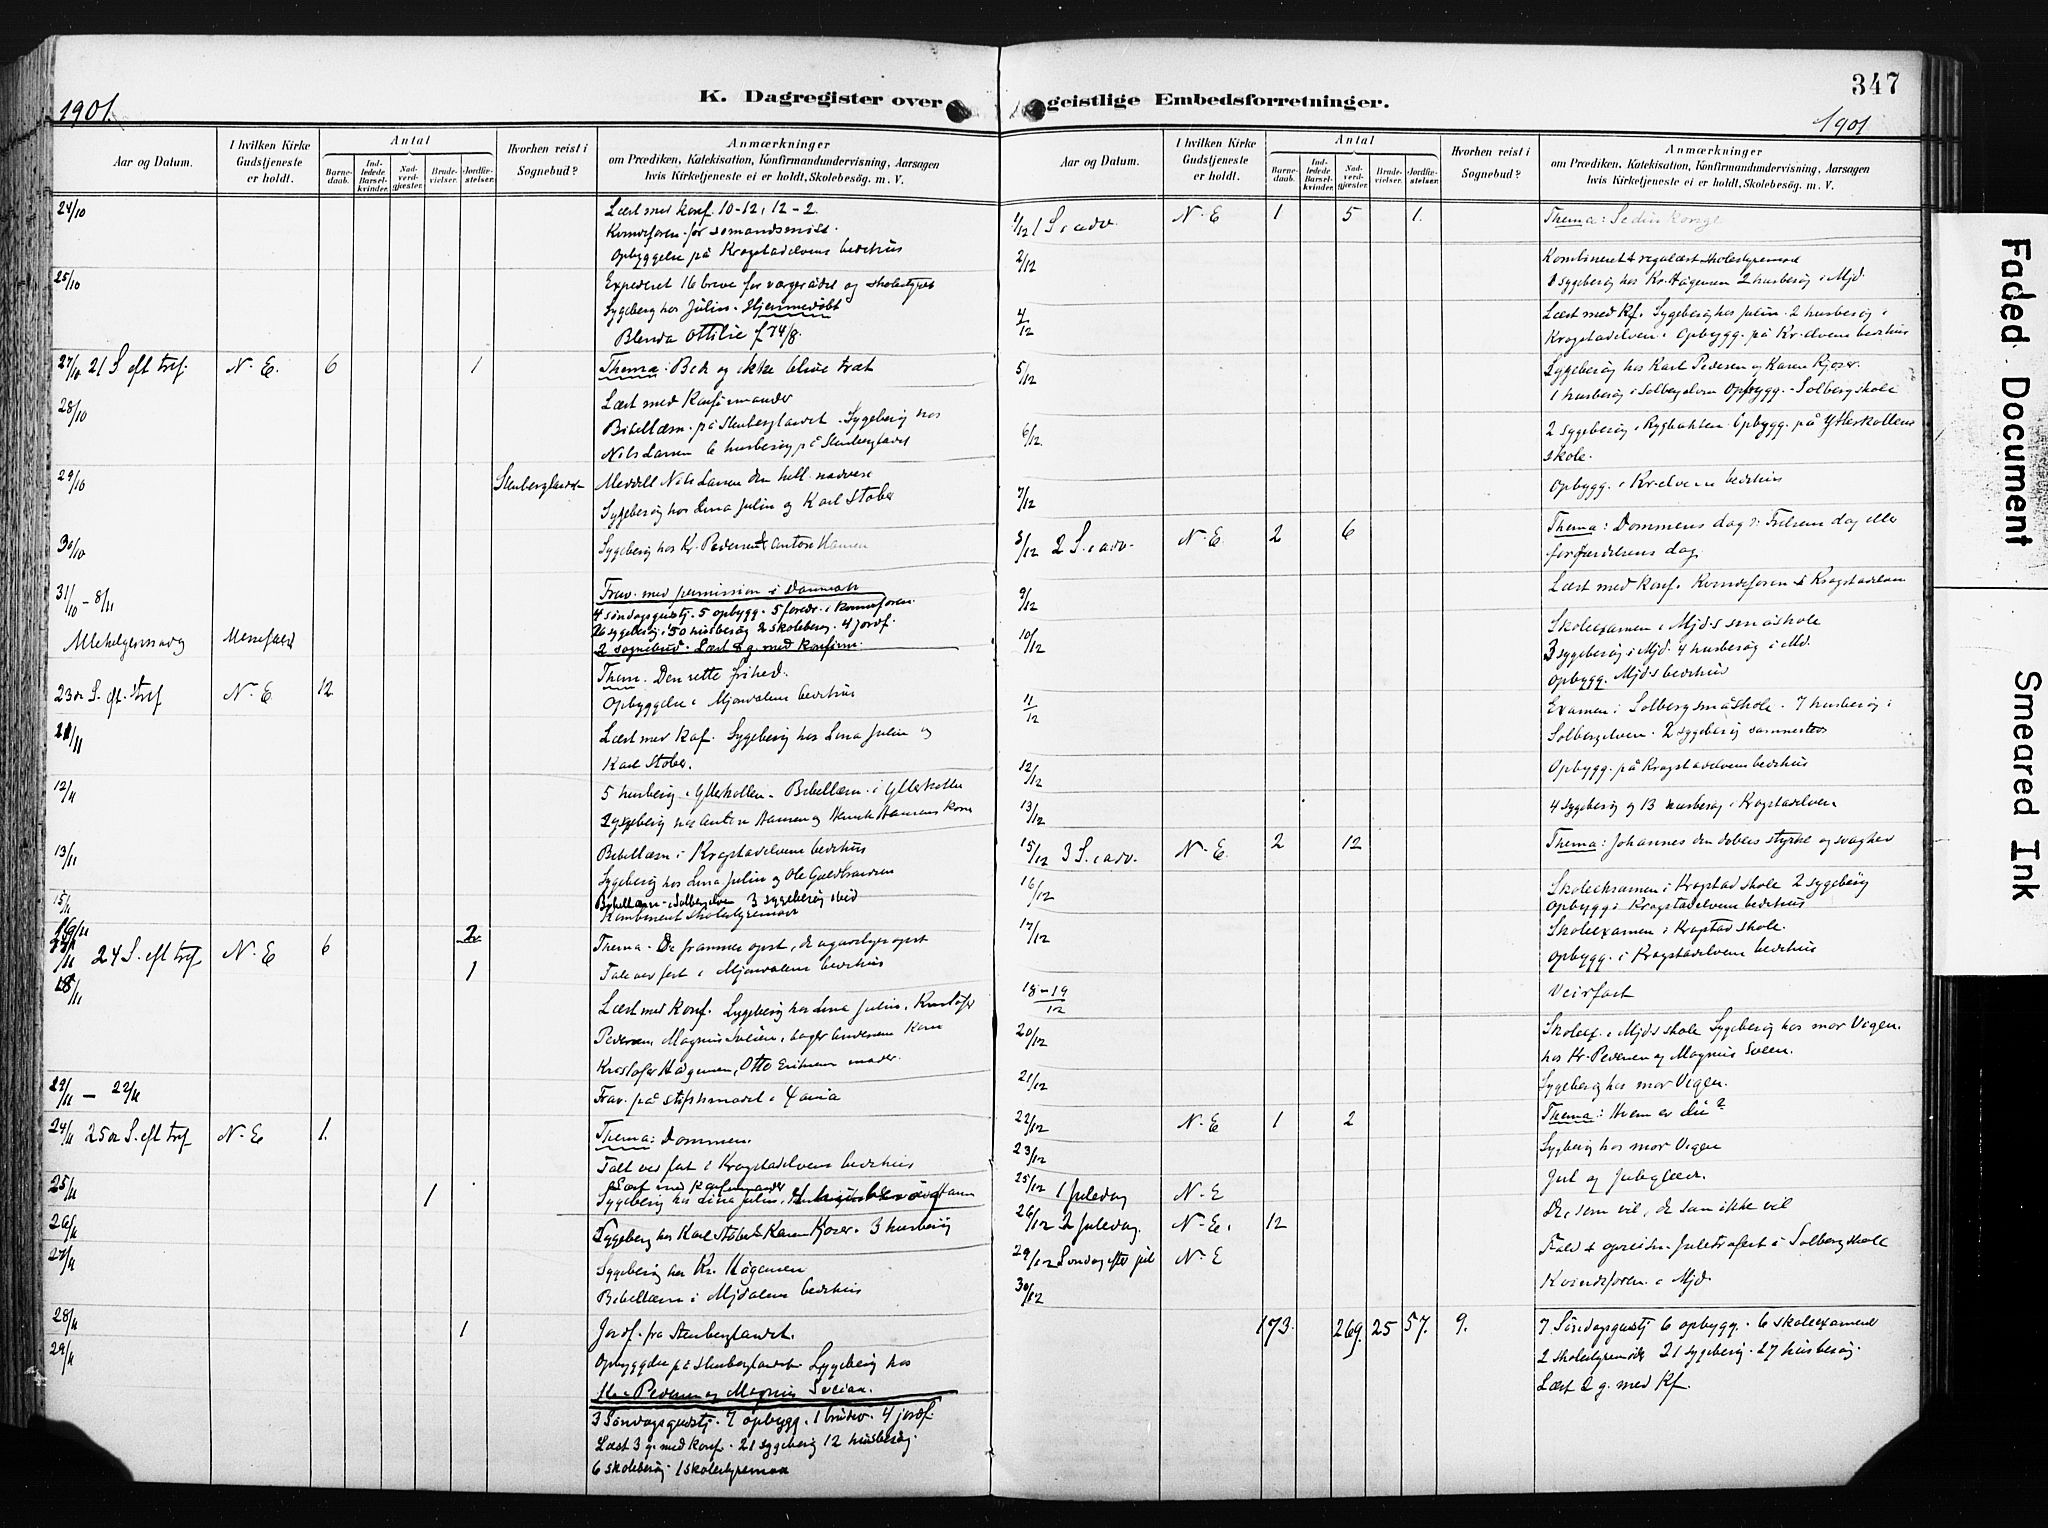 347
K. Dagregister over geistlige Embedsforretninger.
1901.
1901
Aar og Datum.
I hvilken Kirke Gudstjeneste er holdt.
Antal
Barnedaab.
Indledede Barselkvinder.
Nadverdgjæster.
Brudevielser.
Jordfæstelser.
Hvorhen reist i Sognebud?
Anmærkninger
om Prædiken, Katekisation, Konfirmandundervisning, Aarsagen
hvis Kirketjeneste ei er holdt, Skolebesög. m. V.
24/10 Læst med konf. 10-12, 12-2.
Kvindeforen. for sømandsmiss.
Opbyggelse på Krogstadelvens bedehus
25/10 Expederet 16 breve for vergerådet og skolestyret
Sygebesøg hos Julin. Hjemmedøbt
Blenda Ottilie f 14/8.
27/10 21 S. eft tref. N. E. 6 1 Thema: Bed og ikke blive træt
28/10 Læst med Konfirmander
Bibellæsn. på Stenberglandet. Sygebesøg hos
Nils Larsen 6 husbesøg på Stenberglandet
29/10 Stenberglandet Meddelt Nils Larsen den hell. nadvere
Sygebesøg hos Lina Julin og Karl Støber
30/10 Sygebesøg hos Kr. Pedersen & Anton Hansen
31/10 - 8/11 Frav. med permission i Danmark
4 søndagsgudstj. 5 opbygg. 5 foredr. i kvindeforen.
26 sygebesøg. 50 husbesøg 2 skolebesøg. 4 jordf.
2 sognebud. Læst 8 g. med konfirm.
Allehelgensdag Messefald
Them. Den rette frihed.
23de S. eft. tref N. E 12 Opbyggelse i Mjøndalens bedehus
11/11 Læst med Konf. Sygebesøg hos Lina Julin og
Karl Støber.
12/11 5 husbesøg i Ytterkollen. Bibellæsn. i Ytterkollen
Sygebesøg hos Anton Hansen og Henrik Hansens kone
13/11 Bibellæsn i Krogstadelvens bedehus
Sygebesøg hos Lina Julin og Ole Guldbrandsen
15/11 Bibellæsn. i Solbergelven 3 sygebesøg ibid
Kombineret skolestyremøde
16/11 2
17/11 24 S. eft tref N. E 6 Thema. De frammes opst, de ugudeliges opst
1 Tale ved fest i Mjøndalens bedehus
18/11 Læst med Konf. Sygebesøg hos Lina Julin, Kristofer
Pedersen, Magnus Sveien, bager Andersens kone
Kristofer Hågensen, Otto Eriksens moder.
- 22/11 Frav. på stiftsmødet i
24/11 25de S. eft tref N. E 1. Thema: Dommen.
Talt ved fest i Krogstadelvens bedehus
25/11 1 Læst med Konfirmander
Sygebesøg hos Lina Julin,
26/11 Sygebesøg hos Karl Støber & Karen Kjøser. 3 husbesøg
27/11 Sygebesøg hos Kr. Hågensen
Bibellæsn i Mjdalens bedehus
28/11 1 Jordf. fra Stenberglandet.
29/11 Opbyggelse på Stenberglandet Sygebesøg hos
Kr. Pedersen og Magnus Sveian.
3 Søndagsgudstj. 7 opbygg. 1 brudev. 4 jordf.
Læst 3 g. med konf. 21 sygebesøg 12 husbesøg.
6 skolebesøg. 1 skolestyremøde
Aar og Datum.
I hvilken Kirke Gudstjeneste er holdt.
Antal
Barnedaab.
Indledede Barselkvinder.
Nadverdgjæster.
Brudevielser.
Jordfæstelser.
Hvorhen reist i Sognebud?
Anmærkninger
om Prædiken, Katekisation, Konfirmandundervisning, Aarsagen
hvis Kirketjeneste ei er holdt, Skolebesög. m. V.
1/12 1 S. i adv. N. E 1 5 1. Thema: Se din konge
2/12 Kombineret & skolestyremøde
sygebesøg hos Kr. Hågensen 2 husbesøg i Mjd.
4/12 Læst med Kf. Sygebesøg hos Julin. 2 husbesøg i
Krogstadelven. Opbygg. på Kr.elvens bedehus
5/12 Sygebesøg hos Karl Pedersen og Karen Kjøser.
1 husbesøg i Solbergelven Opbygg. Solberg skole
6/12 2 sygebesøg i Rygbakken Opbygg. på Ytterkollens
skole.
7/12 Opbygg. i Kr.elvens bedehus
8/12 2 S. i adv. N. E. 2 6 Thema: Dommens dag: Frelsens dag eller
fortærdelsens dag.
9/12 Læst med konf. Kvindeforen i Krogstadelven
10/12 Skoleexamen i Mjds småskole
3 sygebesøg i Mjd. 4 husbesøg i Md.
opbygg. Mjds bedehus
11/12 Examen i Solberg småskole. 7 husbesøg i
Solbergelven. 2 sygebesøg sammesteds
12/12 Opbygg. på Krogstadelvens bedehus
13/12 4 sygebesøg og 13 husbesøg i Krogstadelven
15/12 3 S. i adv. N. E. 2 12 Thema: Johannes den døbers styrke og svaghed
16/12 Skoleeksamen i Krogstad skole 2 sygebesøg
opbygg i Krogstadelvens bedehus
17/12 Skoleexamen i Krogstad skole.
opbygg. i Krogstadelvens bedehus
18-19/12 Veirfast
20/12 Skoleex. i Mjds skole Sygebesøg hos mor Vigen.
hos Kr. Pedersen og Magnus Sveen.
21/12 Sygebesøg hos mor Vigen.
22/12 N. E 1 2 Thema: Hvem er du?
23/12 Sygebesøg hos mor Vigen
25/12 1 Juledag N. E Jul og Juleglæde.
26/12 2 Juledag N. E. 12 De, som vil, de som ikke vil
29/12 Søndag efter jul N. E Juletræfest i Solberg skole
30/12 Kvindeforen. i Mjd.
173. 269. 25 57. 9. 7 Søndagsgudstj 6 opbygg. 6 skoleexamener
2 skolestyremøde 21 sygebesøg. 27 husbesøg.
Læst 2 g. med Kf.
Faded Document
Smeared Ink